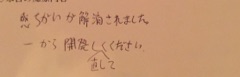 感ちがいが解消されました
一から開発しくください
直して